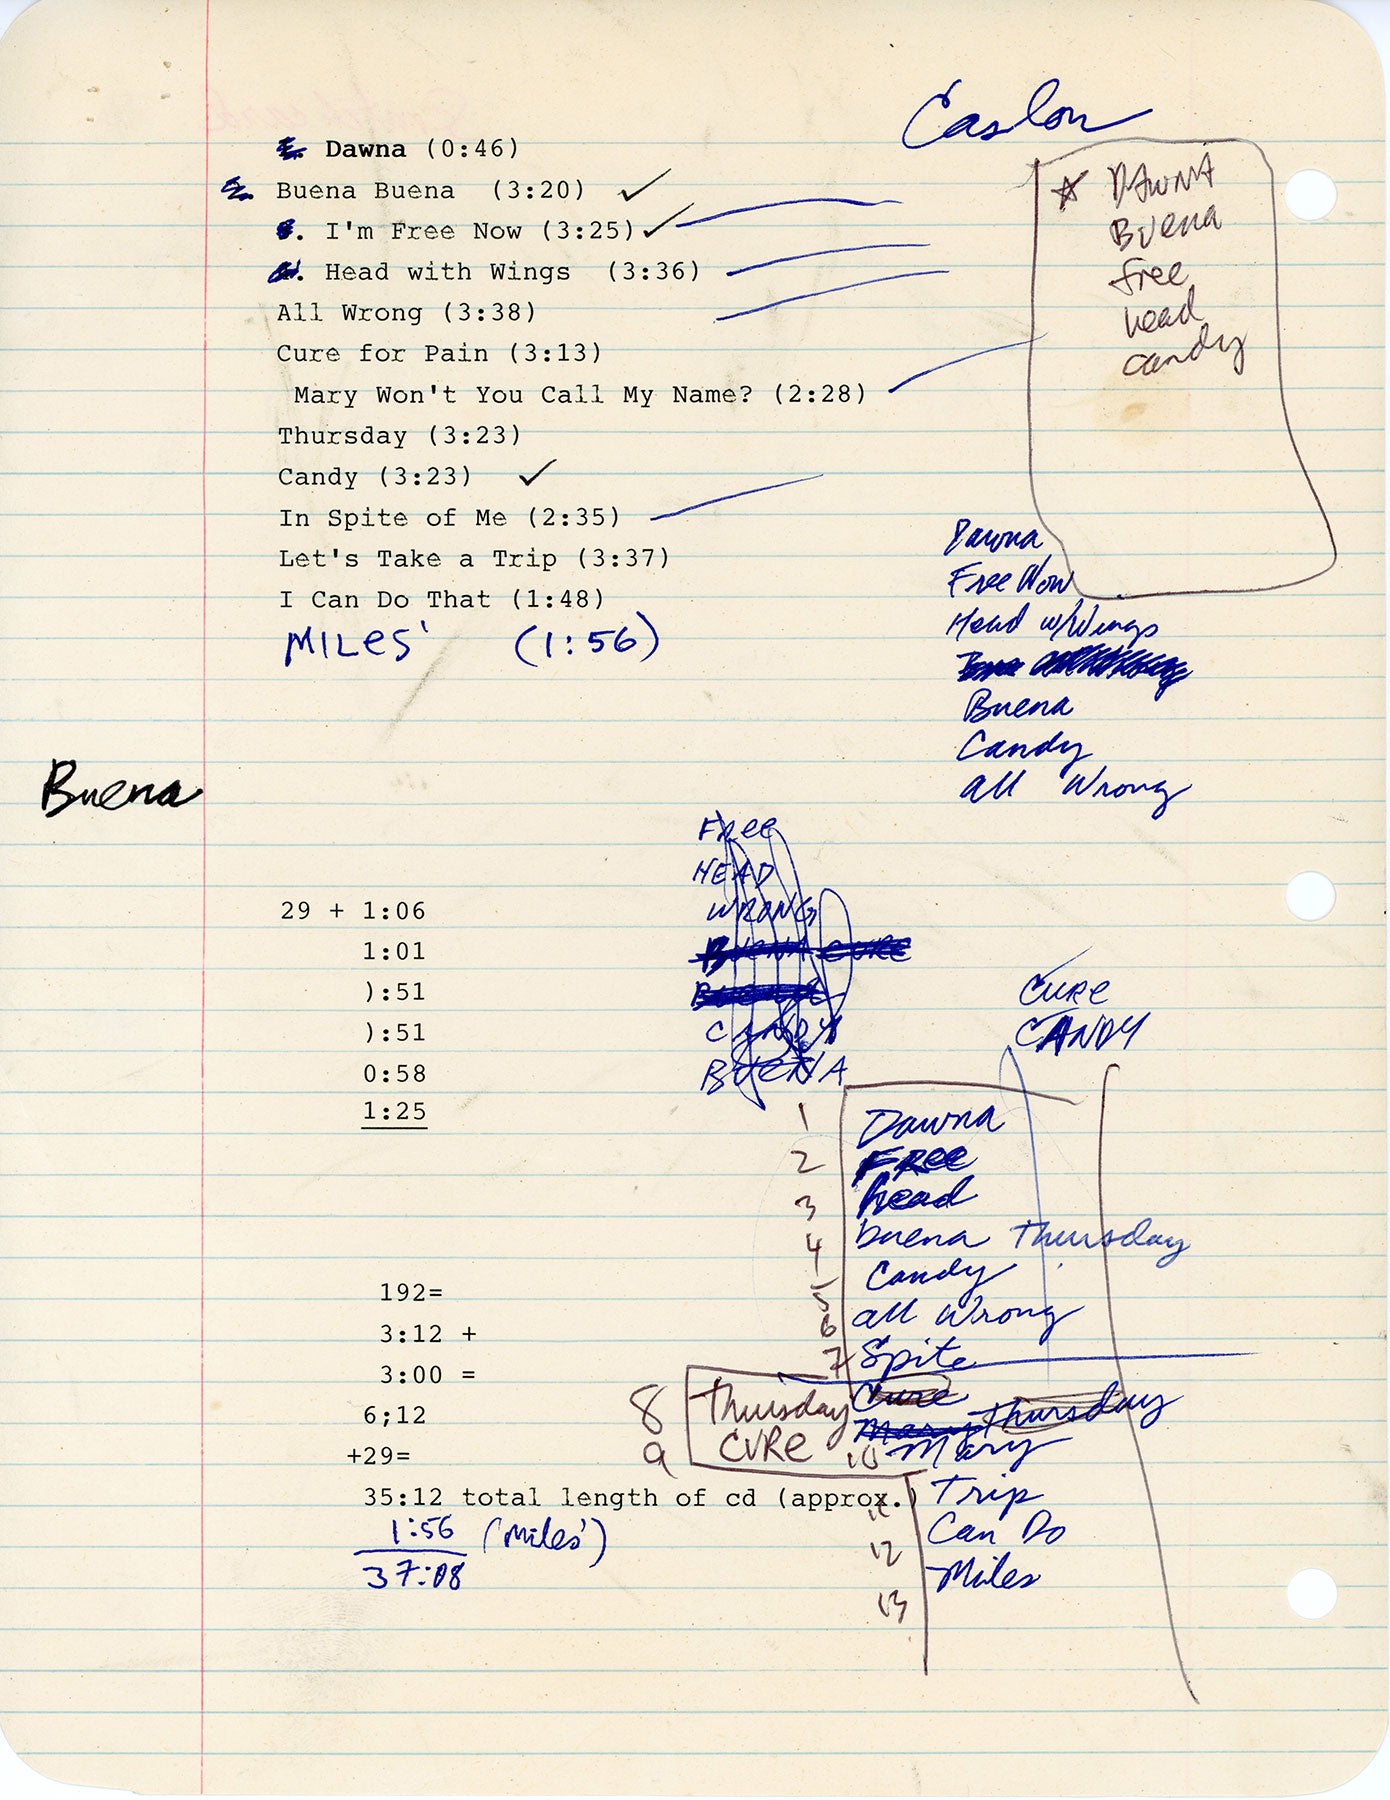 Caslon
Dawna (0:46)
Buena Buena (3:20) ✓
I'm Free Now (3:25) ✓
Head with Wings (3:36)
All Wrong (3:38)
Cure for Pain (3:13)
Mary Won't You Call My Name? (2:28)
Thursday (3:23)
Candy (3:23) ✓
In Spite of Me (2:35)
Let's Take a Trip (3:37)
I Can Do That (1:48)
MILES' (1:56)
DAWNA
Buena
free
head
candy
Dawna
Free Now
Head w/Wings
Buena
Candy
all Wrong
Buena
FRee
HEAD
WRONG
BUENA CURE
BUENA
CANDY
BUENA
29 + 1:06
1:01
):51
):51
0:58
1:25
CURE
CANDY
1 Dawna
2 FRee
3 head
4 buena Thursday
5 Candy
6 all Wrong
7 Spite
Cure
Mary Thursday
8 Thursday
9 CURe
10 Mary
11 Trip
12 Can Do
13 Miles
192=
3:12 +
3:00 =
6;12
+29=
35:12 total length of cd (approx.)
1:56 (Miles')
37:08